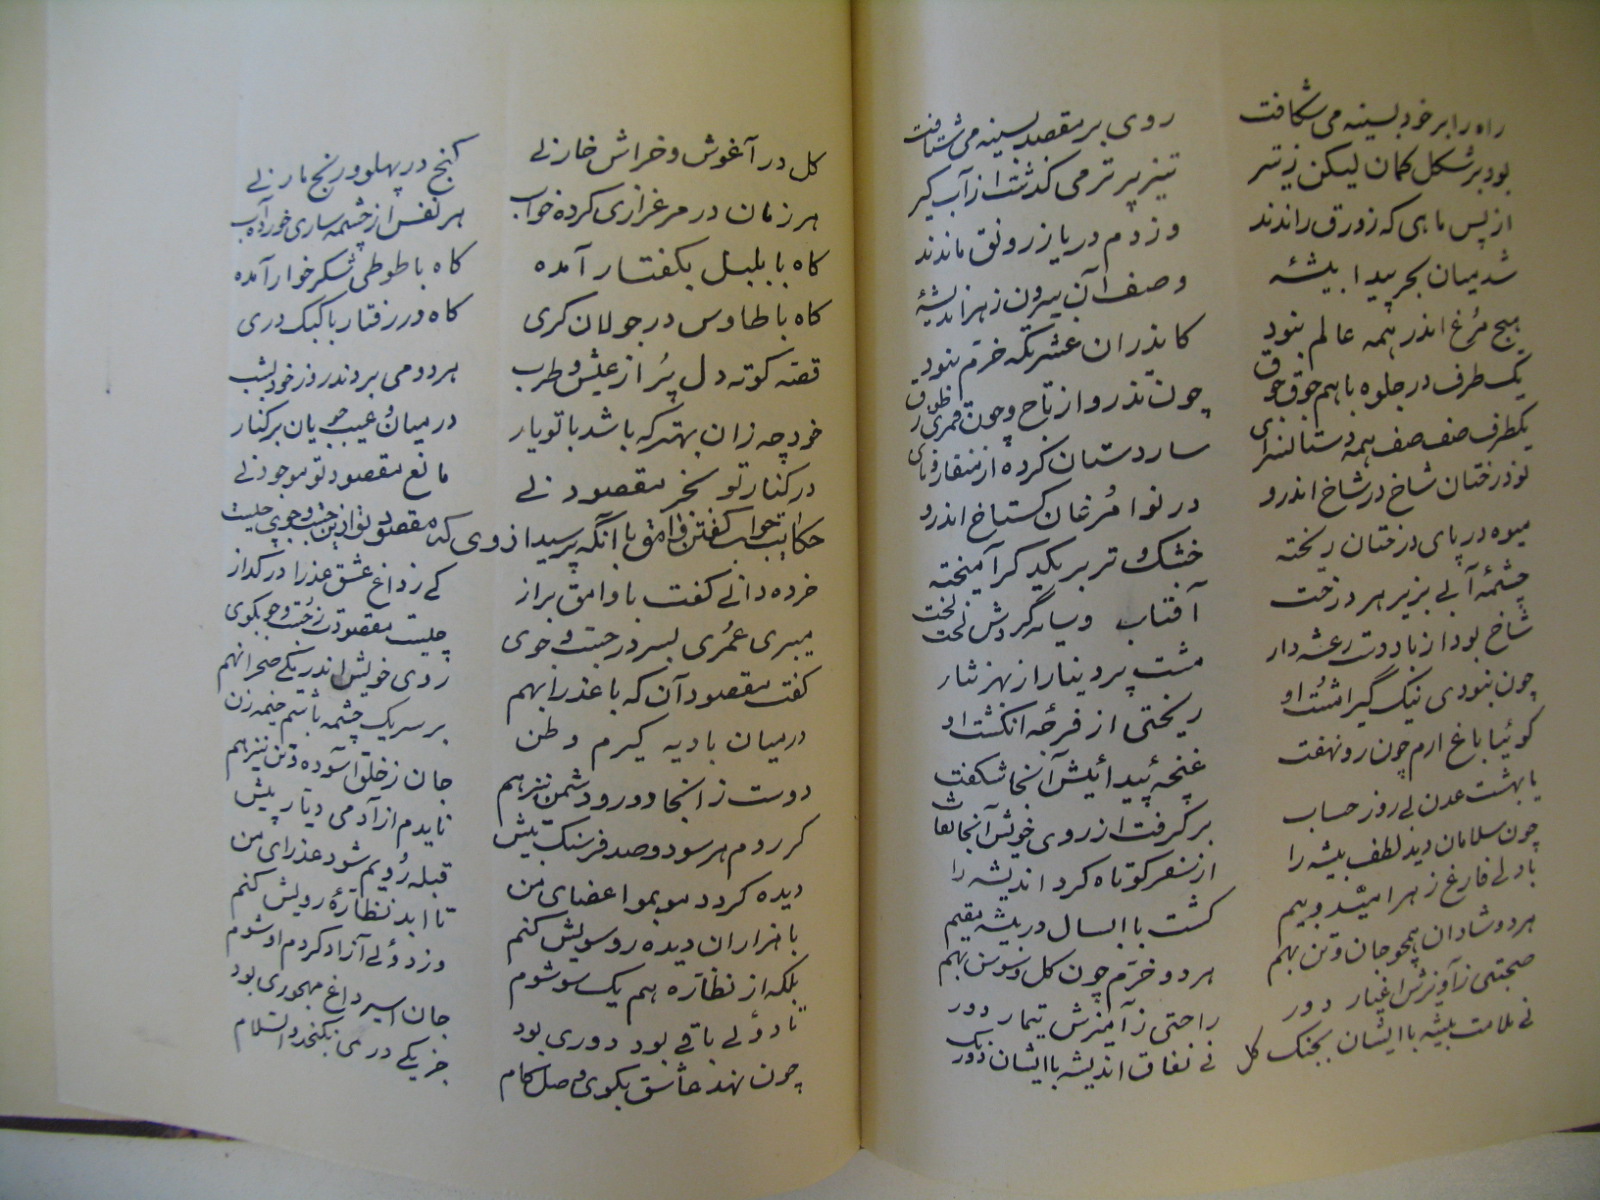 راه را بر خود بسینه می شکافت روی بر مقصد بسینه می شتافت
بود بر شکل کمان لیکن ز تیر تیز پر تر می گذشت از آب گیر
از پس ماهی که زورق راندند وز دم دریا ز رونق ماندند
شد میان بحر پیدا بیشهٔ وصف آن بیرون ز هر اندیشهٔ
هیچ مرغ اندر همه عالم نبود کاندران عشرتگه خرم نبود
یک طرف در جلوه با هم جوق جوق چون تذرو از تاج و چون قمری ز طوق
یکطرف صف صف همه دستانسرای ساز دستان کرده از منقار و نای
نو درختان شاخ در شاخ اندرو در نوا مرغان گستاخ اندرو
میوه در پای درختان ریخته خشک و تر بر یکدگر آمیخته
چشمهٔ آبی بزیر هر درخت آفتاب و سایه گردش لخت لخت
شاخ بود از باد دست رعشه دار مشت پر دینار از بهر نثار
چون نبودی نیک گیرا مشت او ریختی از فرجه انگشت او
گوئیا باغ ارم چون رو نهفت غنچهٔ پیدائیش آنجا شکفت
یا بهشت عدن بی روز حساب برگرفت از روی خویش آنجا نقاب
چون سلامان دید لطف بیشه را از سفر کوتاه کرد اندیشه را
با دلی فارغ ز هر امید و بیم گشت با ابسال در بیشه مقیم
هر دو شادان همچو جان و تن بهم هر دو خرم چون گل و سوسن بهم
صحبتی ز آویزش اغیار دور راحتی ز آمیزش تیمار دور
نی ملامت پیشه با ایشان بجنگ نی نفاق اندیشه با ایشان دورنگ
گل در آغوش و خراش خار نی گنج در پهلو و رنج مار نی
هر زمان در مرغزاری کرده خواب هر نفس از چشمه ساری خورده آب
گاه با بلبل بگفتار آمده گاه با طوطی شکر خوار آمده
گاه با طاوس در جولان گری گاه در رفتار با کبک دری
قصه کوته دل پر از عیش و طرب هر دو می بردند روز خود بشب
خود چه زان بهتر که باشد با تو یار در میان و عیب جویان بر کنار
در کنار تو بجز مقصود نی مانع مقصود تو موجود نی
حکایت جواب گفتن وامق با آنکه پرسید از وی که مقصود تو ازین جست و جوی چیست
خرده دانی گفت با وامق براز کی ز داغ عشق عذرا در گداز
میبری عمری بسر در جست و جوی چیست مقصودت ز جست و جو بگوی
گفت مقصود آن که با عذرا بهم روی خویش اندر یکی صحرا نهم
در میان بادیه گیرم وطن بر سر یک چشمه باشم خیمه زن
دوست ز آنجا دور و دشمن نیز هم جان ز خلق آسوده و تن نیز هم
گر روم هر سو دو صد فرسنگ بیش نایدم از آدمی دیار پیش
دیده گردد مو بمو اعضای من قبله رویم شود عذرای من
با هزاران دیده رو سویش کنم تا ابد نظارهٔ رویش کنم
بلکه از نظاره هم یک سو شوم وز دوئی آزاد کردم او شوم
تا دوئی باقی بود دوری بود جان اسیر داغ مهجوری بود
چون نهد عاشق بکوی وصل گام جز یکی در می نگنجد والسلام